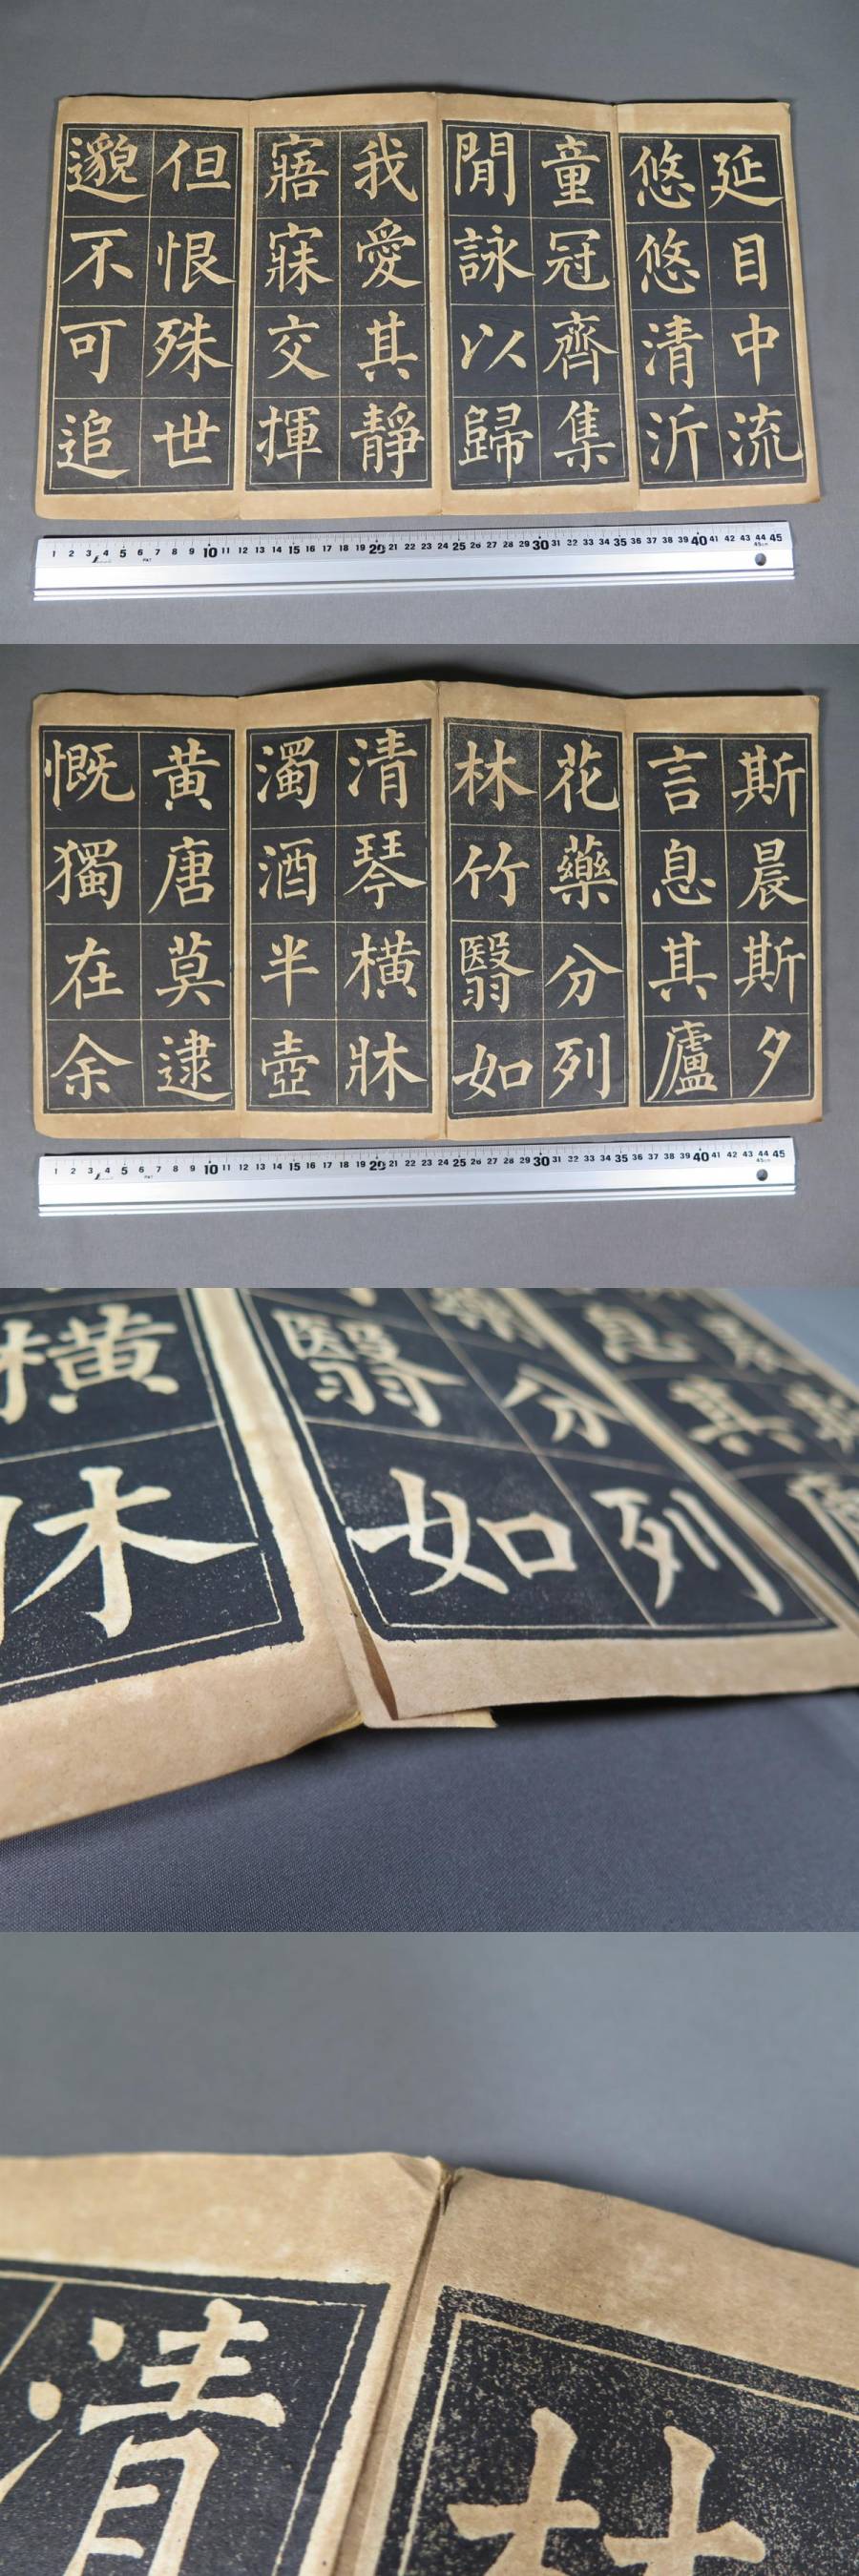 延目中流
悠悠清沂
童冠齊集
閒詠以歸
我愛其靜
寤寐交揮
但恨殊世
邈不可追
1 2 3 4 5 6 7 8 9 10 11 12 13 14 15 16 17 18 19 20 21 22 23 24 25 26 27 28 29 30 31 32 33 34 35 36 37 38 39 40 41 42 43 44 45
斯晨斯夕
言息其廬
花藥分列
林竹翳如
清琴橫牀
濁酒半壺
黃唐莫逮
慨獨在余
1 2 3 4 5 6 7 8 9 10 11 12 13 14 15 16 17 18 19 20 21 22 23 24 25 26 27 28 29 30 31 32 33 34 35 36 37 38 39 40 41 42 43 44 45
息
其
分列
翳如
橫
清